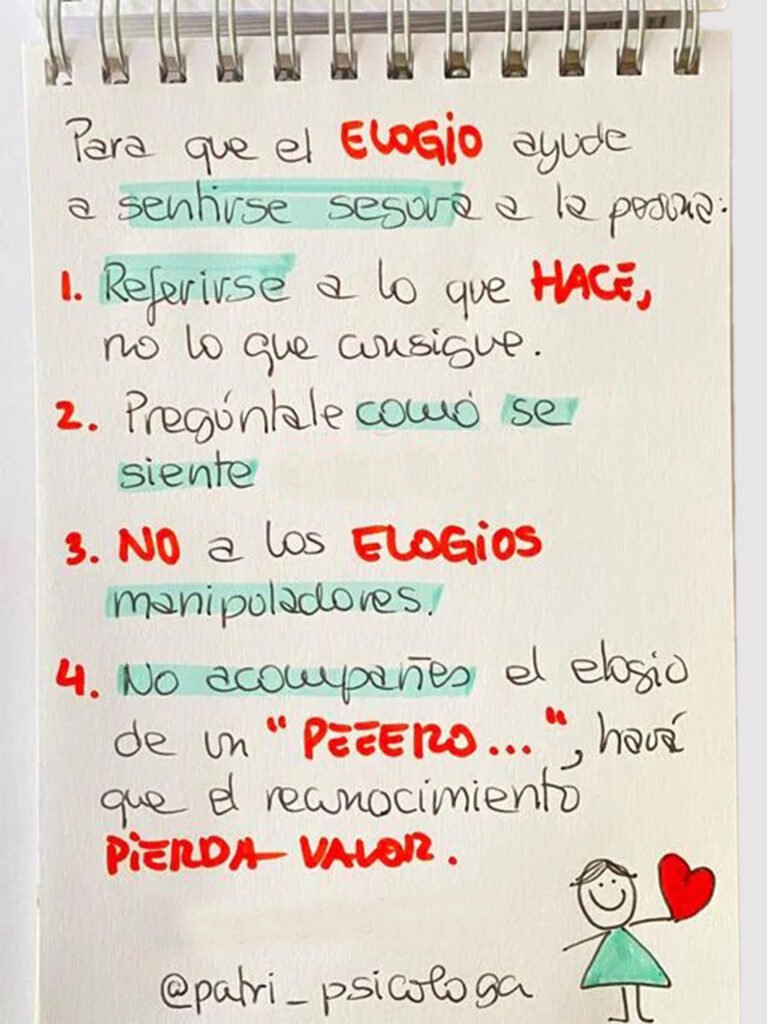 Para que el ELOGIO ayude
a sentirse segura a la persona:
1. Referirse a lo que HACE,
no lo que consigue.
2. Pregúntale cómo se
siente
3. NO a los ELOGIOS
manipuladores.
4. No acompañes el elogio
de un "PEEERO...", hará
que el reconocimiento
PIERDA VALOR.
@patri_psicologa